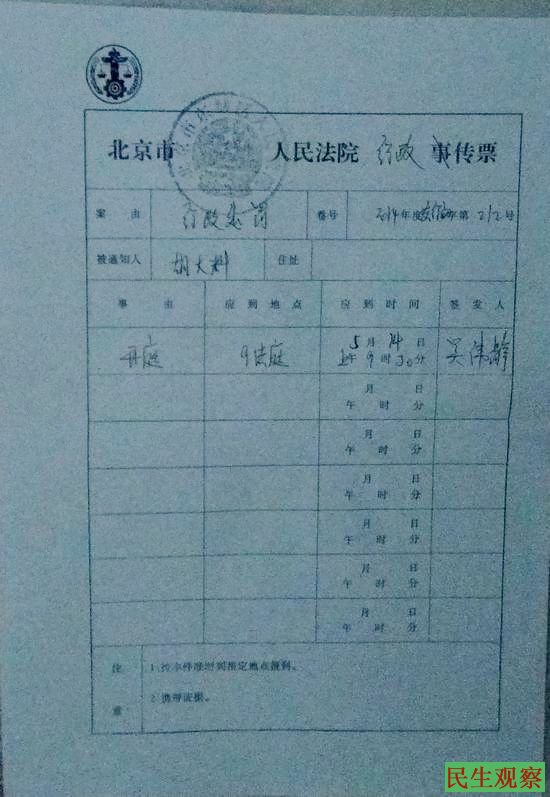 北京市 人民法院 行政 事传票
案由 行政处罚 卷号 2014年度 年第212号
被通知人 胡大料 住址
事由 应到地点 应到时间 签发人
开庭 9法庭 5月14日 吴伟
上午9时30分
月 日
午 时 分
月 日
午 时 分
月 日
午 时 分
月 日
午 时 分
月 日
午 时 分
月 日
午 时 分
注意
1.持本件准时到指定地点报到。
2.携带证据。
民生观察